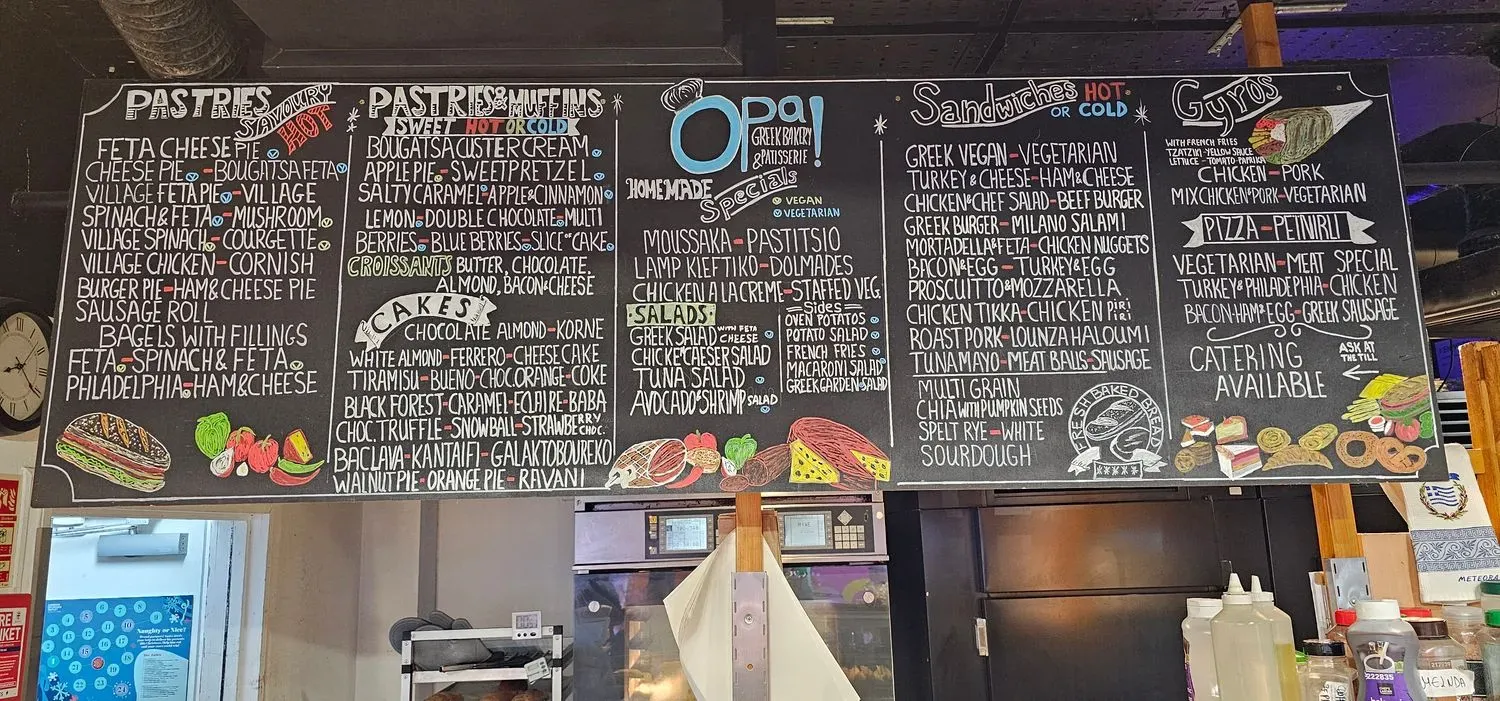 PASTRIES
SAVOURY
HOT
FETA CHEESE PIE
CHEESE PIE - BOUGATSA FETA
VILLAGE FETA PIE - VILLAGE
SPINACH & FETA - MUSHROOM
VILLAGE SPINACH - COURGETTE
VILLAGE CHICKEN - CORNISH
BURGER PIE - HAM & CHEESE PIE
SAUSAGE ROLL
BAGELS WITH FILLINGS
FETA - SPINACH & FETA
PHILADELPHIA - HAM & CHEESE
PASTRIES & MUFFINS
SWEET HOT OR COLD
BOUGATSA CUSTER CREAM
APPLE PIE - SWEET PRETZEL
SALTY CARAMEL - APPLE & CINNAMON
LEMON - DOUBLE CHOCOLATE - MULTI
BERRIES - BLUE BERRIES - SLICE OF CAKE
CROISSANTS BUTTER, CHOCOLATE,
ALMOND, BACON & CHEESE
CAKES
CHOCOLATE ALMOND - KORNE
WHITE ALMOND - FERRERO - CHEESE CAKE
TIRAMISU - BUENO - CHOC.ORANGE - COKE
BLACK FOREST - CARAMEL - ECLAIRE - BABA
CHOC. TRUFFLE - SNOWBALL - STRAWBERRY CHOC.
BACLAVA - KANTAIFI - GALAKTOBOUREKO
WALNUT PIE - ORANGE PIE - RAVANI
Opa!
GREEK BAKERY
& PATISSERIE
HOMEMADE
Specials
V VEGAN
V VEGETARIAN
MOUSSAKA - PASTITSIO
LAMP KLEFTIKO - DOLMADES
CHICKEN A LA CREME - STAFFED VEG.
SALADS
GREEK SALAD WITH FETA CHEESE
CHICKE CAESER SALAD
TUNA SALAD
AVOCADO & SHRIMP SALAD
Sides
OVEN POTATOS
POTATO SALAD
FRENCH FRIES
MACARONI SALAD
GREEK GARDEN SALAD
Sandwiches HOT
OR COLD
GREEK VEGAN - VEGETARIAN
TURKEY & CHEESE - HAM & CHEESE
CHICKEN & CHEF SALAD - BEEF BURGER
GREEK BURGER - MILANO SALAMI
MORTADELLA & FETA - CHICKEN NUGGETS
BACON & EGG - TURKEY & EGG
PROSCUITTO & MOZZARELLA
CHICKEN TIKKA - CHICKEN PIRI PIRI
ROAST PORK - LOUNZA HALOUMI
TUNA MAYO - MEAT BALLS - SAUSAGE
MULTI GRAIN
CHIA WITH PUMPKIN SEEDS
SPELT RYE - WHITE
SOURDOUGH
FRESH BAKED BREAD
Gyros
WITH FRENCH FRIES
TZATZIKI - YELLOW SAUCE
LETTUCE - TOMATO - PAPRIKA
CHICKEN - PORK
MIX CHICKEN & PORK - VEGETARIAN
PIZZA - PEINIRLI
VEGETARIAN - MEAT SPECIAL
TURKEY & PHILADELPHIA - CHICKEN
BACON - HAM & EGG - GREEK SAUSAGE
CATERING
AVAILABLE
ASK AT
THE TILL
Naughty or Nice?
METEORA
222835
MELINDA